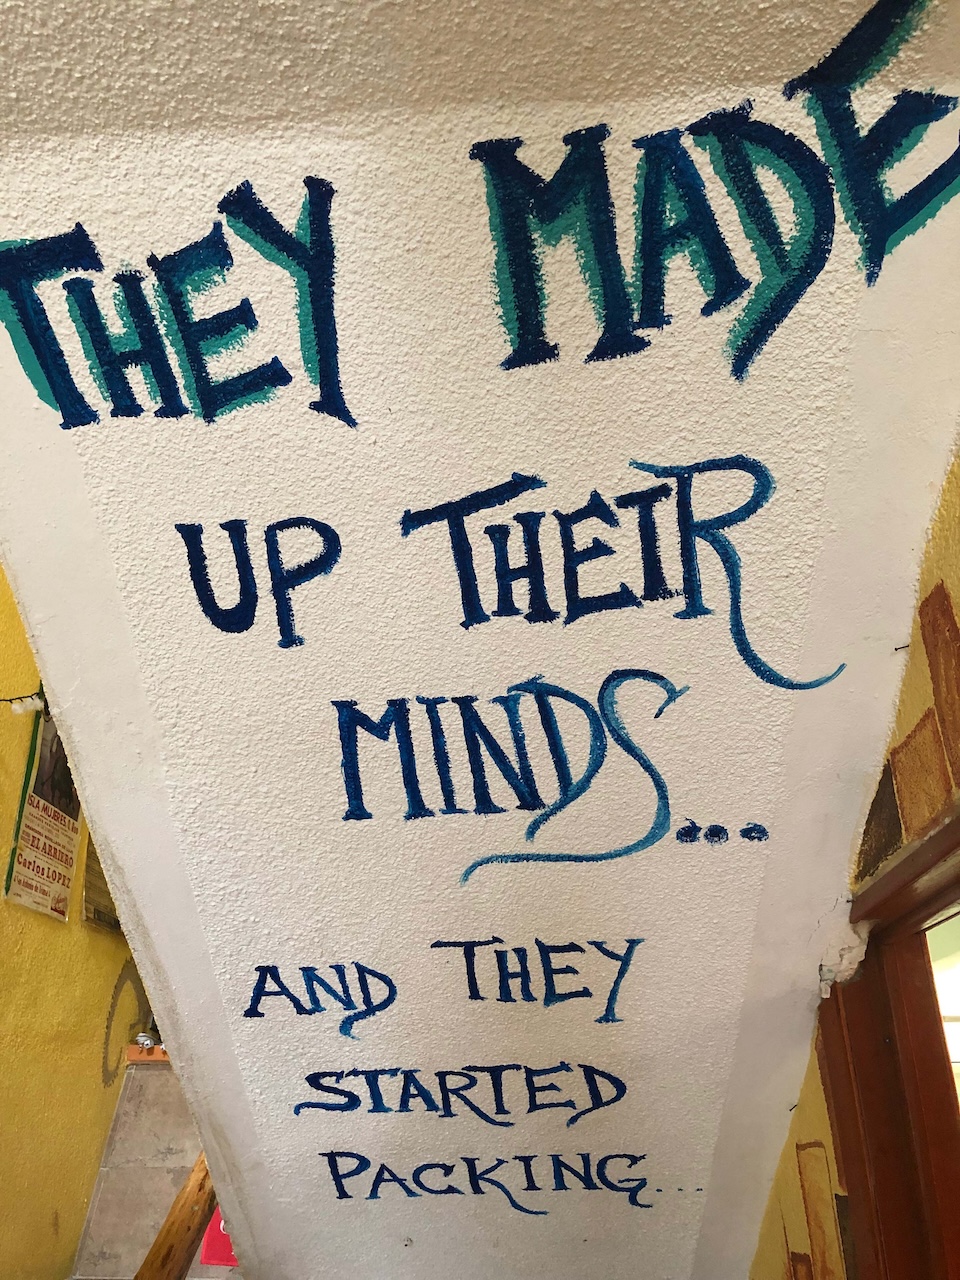 THEY MADE
UP THEIR
MINDS...
AND THEY
STARTED
PACKING...
ISLA MUJERES
EL ARRIERO
Carlos LOPEZ